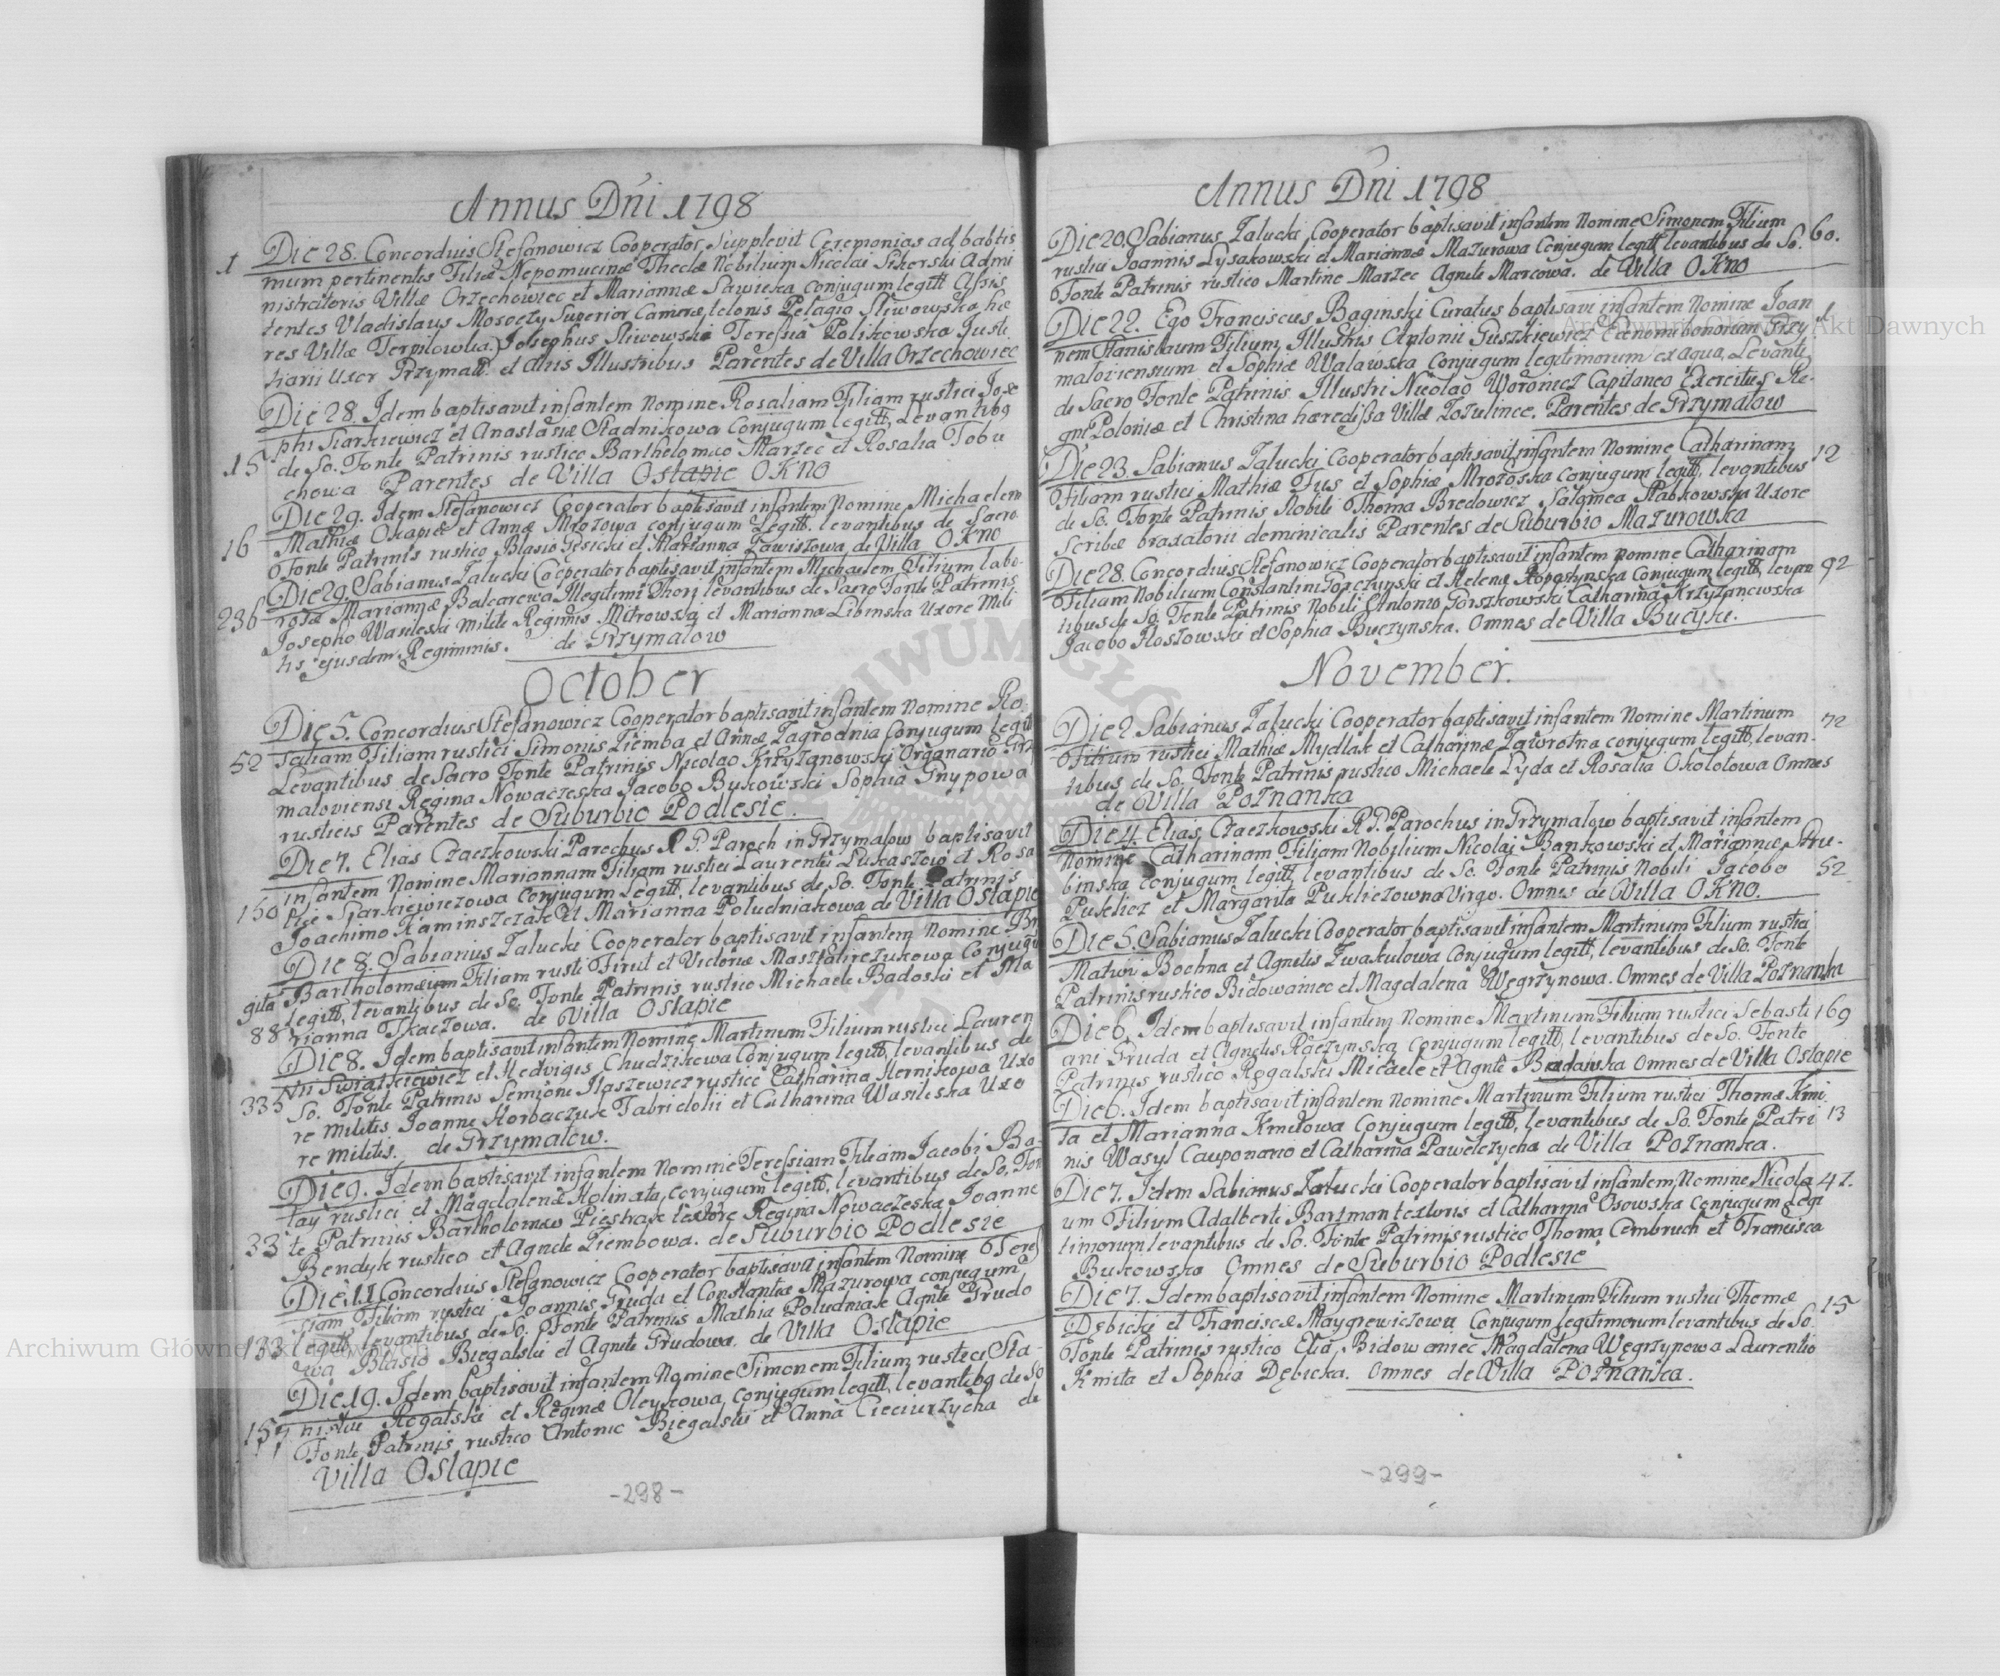 Annus Dni 1798
1
Die 28. Concordius Stefanowicz Cooperator Supplevit Ceremonias ad babtis
mum pertinentes Filiæ Nepomucinæ Theclæ Nobilium Nicolai Sikorski Admi
nistratoris Villæ Orzechowiec et Mariannæ Sawicka conjugum legitt Assis
tentes Vladislaus Mosoczy Superior Cameræ telonis Pelagia Sliwowska hæ
res Villæ Terpilowka Josephus Sliwowski Teresia Polikowska Justi
tiarii Uxor Grzymall. et aliis Illustribus Parentes de Villa Orzechowiec
Die 28. Idem baptisavit infantem Nomine Rosaliam Filiam rustici Jose
phi Siarkiewicz et Anastasiæ Stadnikowa Conjugum legitt, Levantibg
15 de So. Fonte Patrinis rustico Bartholomæo Marzec et Rosalia Tobu
chowa Parentes de Villa Ostapie OKNO
Die 29. Idem Stefanowicz Cooperator baptisavit infantem Nomine Michaelem
16 Mathiæ Oxapiæ et Annæ Mrozowa conjugum Legitt. levantibus de Sacro
Fonte Patrinis rustico Blasio Gesicki et Marianna Zawiszowa de Villa OKNO
Die 29. Sabianus Zalucki Cooperator baptisavit infantem Michaelem Filium labo-
236 rosæ Mariannæ Balcarewa Illegitimi Thori levantibus de Sacro Fonte Patrinis
Josepho Wasileski milite Regimis Mitrowski et Marianna Libinska Uxore Mili
tis ejusdem Regiminis. de Grzymalow
October
Die 5. Concordius Stefanowicz Cooperator baptisavit infantem Nomine Ro
52 saliam Filiam rustici Simonis Ziemba et Annæ Zagrodnia Conjugum legitt
Levantibus de Sacro Fonte Patrinis Nicolao Krzyzanowski Organario Grzy
maloviensi Regina Nowaczeska Jacobo Bukowski Sophia Gnypowa
rusticis Parentes de Suburbio Podlesie.
Die 7. Elias Czaczkowski Parochus R P. Paroch in Grzymalow baptisavit
infantem Nomine Mariannam Filiam rustici Laurentii Lukaszow et Rosa
150 liæ Siarkiewiczowa Conjugum Legitt, levantibus de So. Fonte Patrinis
Joachimo Kaminszczak et Marianna Poludniakowa de Villa Ostapie
Die 8. Sabianus Zalucki Cooperator baptisavit infantem Nomine Br
gita Bartholomæum Filiam rusti Firut et Victoriæ Masztalirczukowa Conjugu
legitt, levantibus de So. Fonte Patrinis rustico Michaele Badoski et Ma
88 rianna Tkaczowa. de Villa Ostapie
Die 8. Idem baptisavit infantem Nomine Martinum Filium rustici Lauren
tii Swiątkiewicz et Hedvigis Chudzikowa Conjugum legitt, levantibus de
335 So. Fonte Patrinis Semione Ilaszewicz rustico Catharina Kerniskowa Uxo
re Militis Joanne Horbaczuk Fabridolii et Catharina Wasileska Uxo
re Militis. de Grzymalow.
Die 9. Idem baptisavit infantem Nomine Teressiam Filiam Jacobi Ba-
lay rustici et Magdalenæ Holinata, conjugum legitt, levantibus de So. Fon
33 te Patrinis Bartholomæo Piestrak textore Regina Nowaczeska Joanne
Bendyk rustico et Agnete Ziembowa. de Suburbio Podlesie
Die 11 Concordius Stefanowicz Cooperator baptisavit infantem Nomine Teres
siam Filiam rustici Joannis Gruda et Constantiæ Mazurowa conjugum
133 legitt, levantibus de So. Fonte Patrinis Mathia Poludniak Agnte Grudo
wa Blasio Biegalski et Agnete Grudowa. de Villa Ostapie
Die 19. Idem baptisavit infantem Nomine Simonem Filium rustici Sta-
nislai Rogalski et Reginæ Oleyxowa, conjugum legitt, levantibg de So
157 Fonte Patrinis rustico Antonio Biegalski et Anna Cieciurzycha de
Villa Ostapie
-298-
Annus Dni 1798
Die 20. Sabianus Zalucki Cooperator baptisavit infantem Nomine Simonem Filium
rustici Joannis Lysakowski et Mariannæ Mazurowa Conjugum legitt, levantibus de So. 60.
Fonte Patrinis rustico Martine Marzec Agnete Marcowa. de Villa OKNO
Die 22. Ego Franciscus Baginski Curatus baptisavi infantem Nomine Joan 1
nem Stanislaum Filium Illustris Antonii Guszkiewicz Economi bonorum Grzy
maloviensium et Sophiæ Walawska Conjugum legitimorum ex aqua, Levanti
de Sacro Fonte Patrinis Illustri Nicolao Woronicz Capitaneo Exercitus Re-
gni Poloniæ et Christina hæredissa Villæ Zozulince. Parentes de Grzymalow
Die 23. Sabianus Zalucki Cooperator baptisavit infantem Nomine Catharinam 12
Filiam rustici Mathiæ Fus et Sophiæ Mrozoska Conjugum legitt, levantibus
de So. Fonte Patrinis Nobili Thoma Bredowicz Salomea Slabkowska Uxore
Scribæ braxatorii dominicalis Parentes de Suburbio Mazurowka
Die 28. Concordius Stefanowicz Cooperator baptisavit infantem nomine Catharinam
Filium Nobilium Constantini Gorczynski et Helenæ Kopestynska Conjugum legitt, levan 92
tibus de So. Fonte Patrinis Nobili Antonio Gorszkowski Catharina Krzyzanowska
Jacobo Koszowski et Sophia Buczynska. Omnes de Villa Bucyki.
November.
Die 2 Sabianus Zalucki Cooperator baptisavit infantem Nomine Martinum 72
Filium rustici Mathiæ Mydlak et Catharinæ Zawrotna conjugum legitt, levan-
tibus de So. Fonte Patrinis rustico Michaele Lyda et Rosalia Okolotowa Omnes
de Villa Poznanka
Die 4. Elias Czaczkowski R P. Parochus in Grzymalow baptisavit infantem
Nomine Catharinam Filiam Nobilium Nicolai Bankowski et Mariannæ Stru-
binska conjugum legitt, levantibus de So. Fonte Patrinis Nobili Jacobo 52
Puklicz et Margarita Pukliczowna Virgo. Omnes de Villa OKNO.
Die 5. Sabianus Zalucki Cooperator baptisavit infantem Martinum Filium rustici
Matwi Bochna et Agnetis Zwakulowa Conjugum legitt, levantibus de So. Fonte
Patrinis rustico Bidowaniec et Magdalena Węgrzynowa. Omnes de Villa Poznanka
Die 6. Idem baptisavit infantem Nomine Martinum Filium rustici Sebasti 169
ani Gruda et Agnetis Raczynska conjugum legitt, levantibus de So. Fonte
Patrinis rustico Rogalski Micaele et Agnte Badawska Omnes de Villa Ostapie
Die 6. Idem baptisavit infantem Nomine Martinum Filium rustici Thomæ Kmi
ta et Marianna Kmitowa Conjugum legitt, levantibus de So. Fonte Patri 13
nis Wasyl Cauponario et Catharina Pawelczycha de Villa Poznanka.
Die 7. Idem Sabianus Zalucki Cooperator baptisavit infantem Nomine Nicola 47.
um Filium Adalberti Barsman textoris et Catharina Osowska Conjugum Legi
timorum levantibus de So. Fonte Patrinis rustico Thoma Cembruch et Francisca
Bukowska Omnes de Suburbio Podlesie
Die 7. Idem baptisavit infantem Nomine Martinum Filium rustici Thomæ
Dębicki et Franciscæ Maygrewiczowa Conjugum legitimorum levantibus de So. 15
Fonte Patrinis rustico Elia, Bidowaniec Magdalena Węgrzynowa Laurentio
Kmita et Sophia Dębicka. Omnes de Villa Poznanka.
-299-
Archiwum Główne Akt Dawnych
Archiwum Główne Akt Dawnych